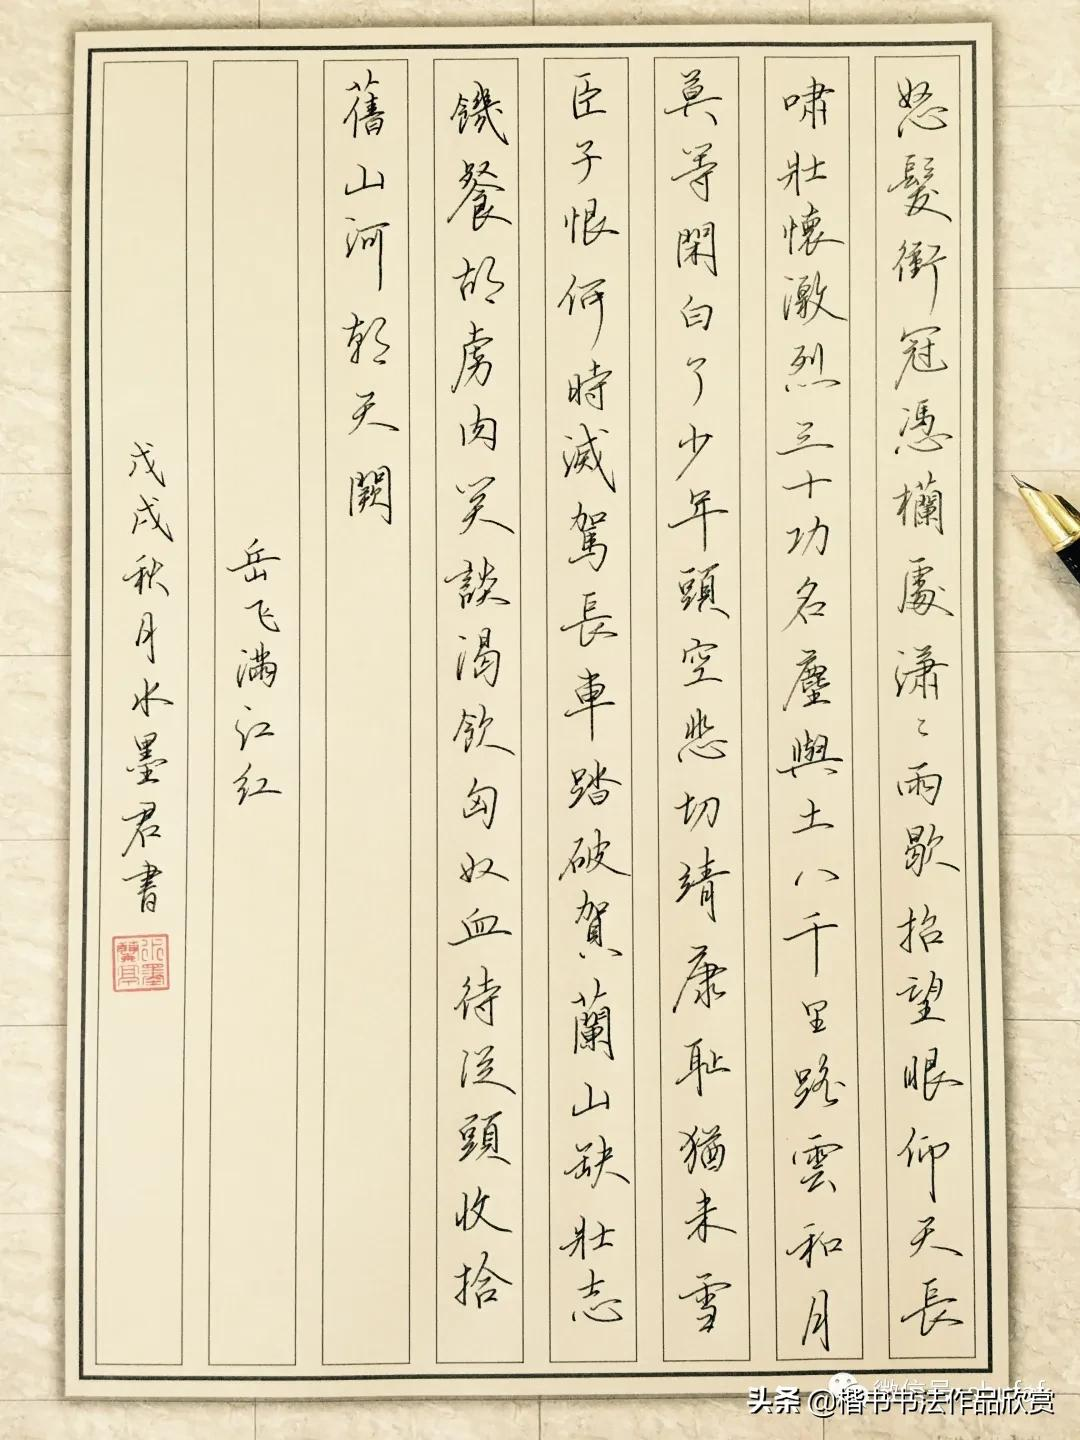 怒髮衝冠憑欄處潇〻雨歇抬望眼仰天長
啸壯懷激烈三十功名塵與土八千里路雲和月
莫等閑白了少年頭空悲切靖康耻猶未雪
臣子恨何時滅駕長車踏破賀蘭山缺壯志
饑餐胡虜肉笑談渴飲匈奴血待從頭收拾
舊山河朝天闕
岳飞满江红
戊戌秋月水墨君書
头条 @楷书书法作品欣赏